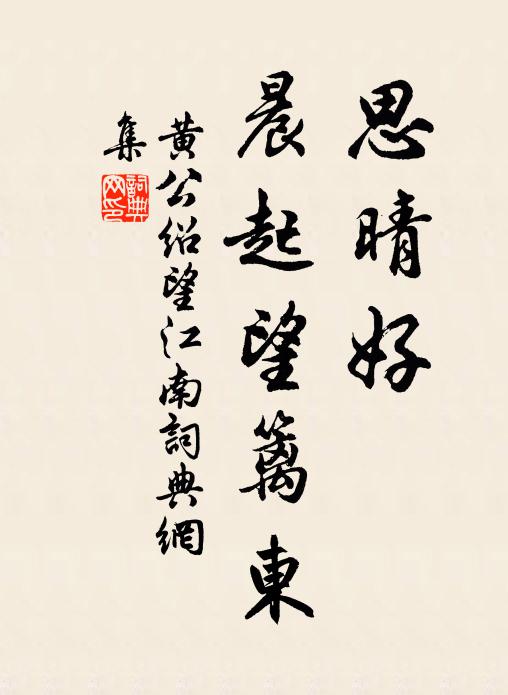 思晴好
晨起望篱東
黄公绍望江南詞典網
集
詞典
网印